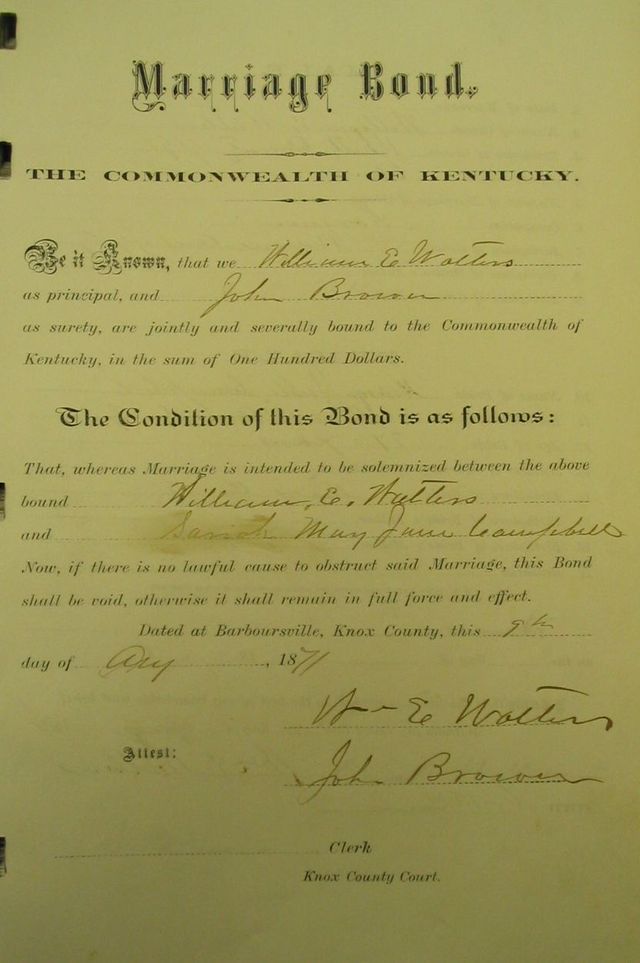 Marriage Bond.
THE COMMONWEALTH OF KENTUCKY.
Be it Known, that we William E Watters
as principal, and John Brower
as surety, are jointly and severally bound to the Commonwealth of
Kentucky, in the sum of One Hundred Dollars.
The Condition of this Bond is as follows:
That, whereas Marriage is intended to be solemnized between the above
bound William. E. Watters
and Sarah May Jane Campbell
Now, if there is no lawful cause to obstruct said Marriage, this Bond
shall be void, otherwise it shall remain in full force and effect.
Dated at Barboursville, Knox County, this 9th
day of Aug, 1871
Wm E Watters
Attest:
John Brower
Clerk
Knox County Court.